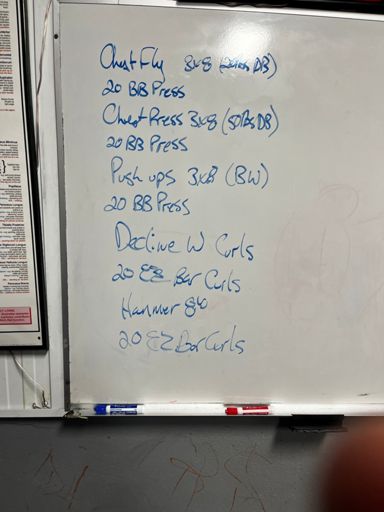 Chest Fly 3x8 (20lbs DB)
20 BB Press
Chest Press 3x8 (50lbs DB)
20 BB Press
Push ups 3x8 (BW)
20 BB Press
Decline W Curls
20 EZ Bar Curls
Hammer
20 EZ Bar Curls